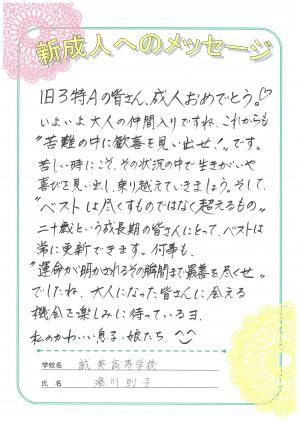 新成人へのメッセージ
旧3特Aの皆さん、成人おめでとう。♡
いよいよ大人の仲間入りですね。これからも
"苦難の中に歓喜を見い出せ!"です。
苦しい時にこそ、その状況の中で生きがいや
喜びを見い出し、乗り越えていきましょう。そして、
"ベストは尽くすものではなく超えるもの"
二十歳という成長期の皆さんにとって、ベストは
常に更新できます。何事も、
"運命が明かされるその瞬間まで最善を尽くせ"
でしたね。大人になった皆さんに会える
機会を楽しみに待っているヨ.
私のかわいい息子・娘たち. ^^
学校名 誠英高等学校
氏名 湊川則子